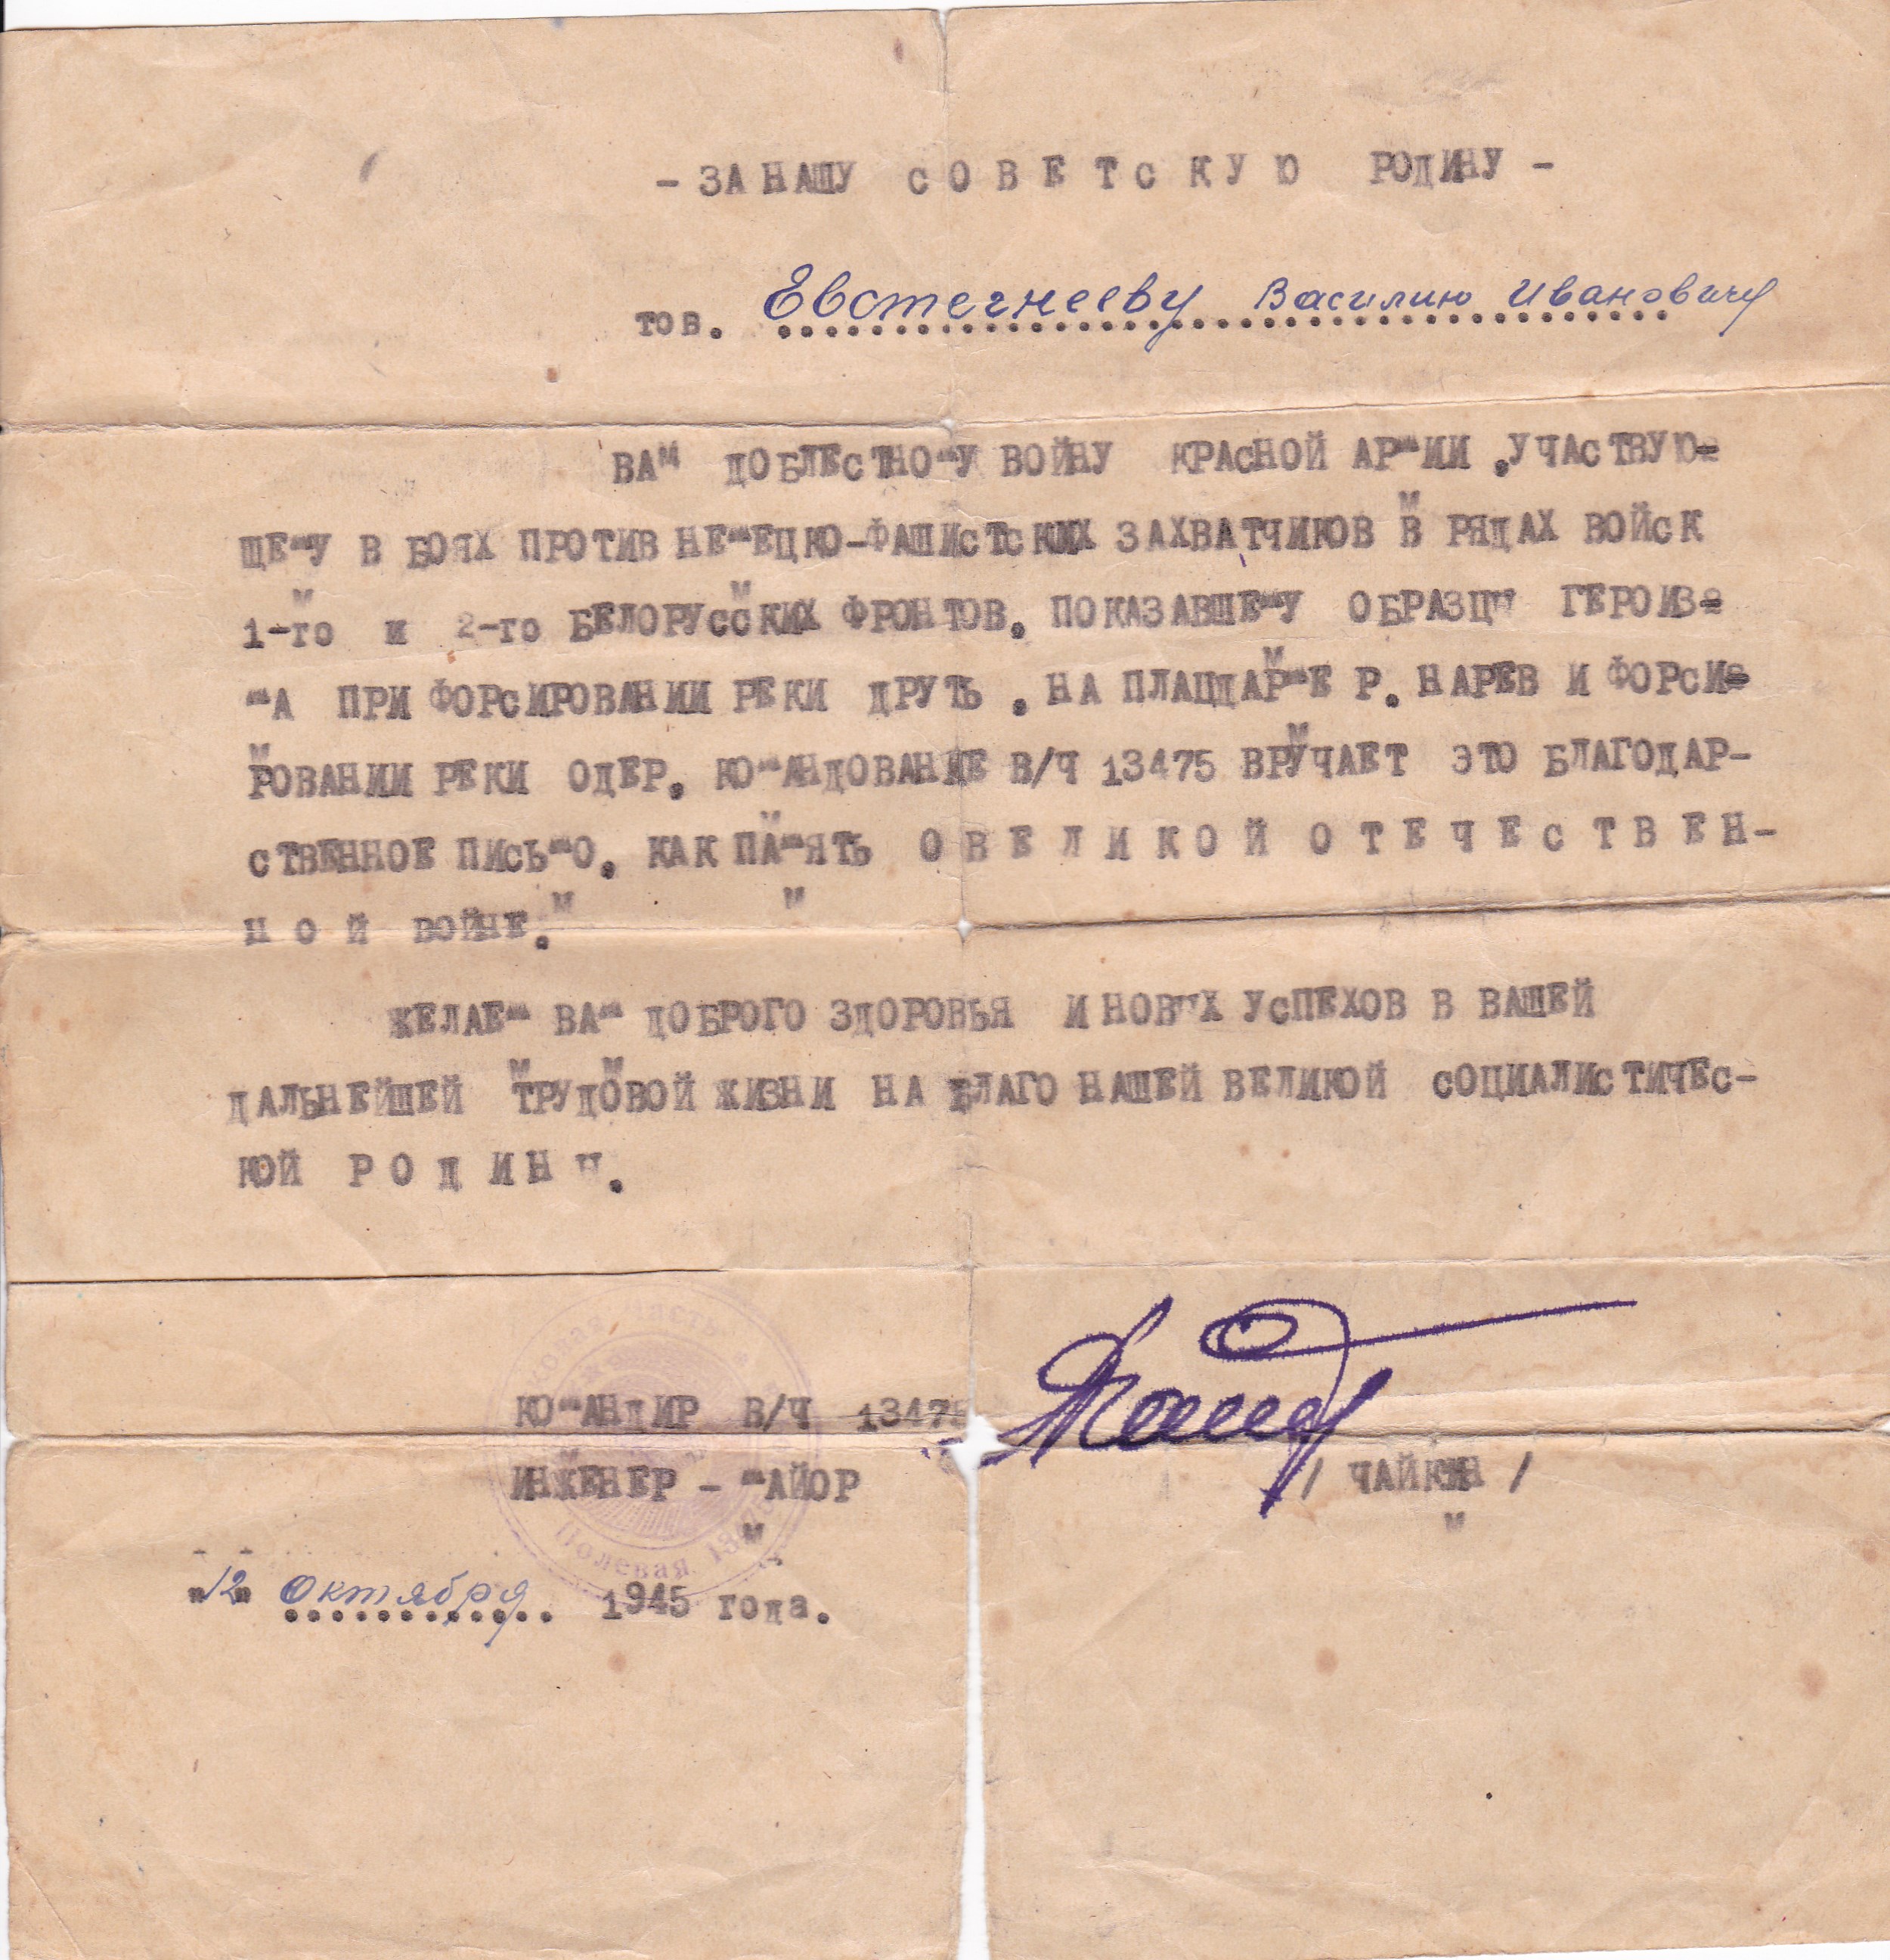 - ЗА НАШУ С О В Е Т С К У Ю РОДИНУ -
тов. Евстегнееву Василию Ивановичу
ВАМ ДОБЛЕСТНОМУ ВОЙНУ КРАСНОЙ АРМИИ ,УЧАСТВУЮ-
ЩЕМУ В БОЯХ ПРОТИВ НЕМЕЦКО-ФАШИСТСКИХ ЗАХВАТЧИКОВ В РЯДАХ ВОЙСК
1-го и 2-го БЕЛОРУССКИХ ФРОНТОВ, ПОКАЗАВШЕМУ ОБРАЗЦЫ ГЕРОИЗ-
МА ПРИ ФОРСИРОВАНИИ РЕКИ ДРУТЬ , НА ПЛАЦДАРМЕ Р. НАРЕВ И ФОРСИ-
РОВАНИИ РЕКИ ОДЕР, КОМАНДОВАНИЕ В/Ч 13475 ВРУЧАЕТ ЭТО БЛАГОДАР-
СТВЕННОЕ ПИСЬМО, КАК ПАМЯТЬ О В Е Л И К О Й О Т Е Ч Е С Т В Е Н -
Н О Й ВОЙНЕ.
ЖЕЛАЕМ ВАМ ДОБРОГО ЗДОРОВЬЯ И НОВЫХ УСПЕХОВ В ВАШЕЙ
ДАЛЬНЕЙШЕЙ ТРУДОВОЙ ЖИЗНИ НА БЛАГО НАШЕЙ ВЕЛИКОЙ СОЦИАЛИСТИЧЕС-
КОЙ Р О Д И Н Ы.
КОМАНДИР В/Ч 13475
ИНЖЕНЕР - МАЙОР / ЧАЙКИН /
"12" Октября 1945 года.
часть
Полевая